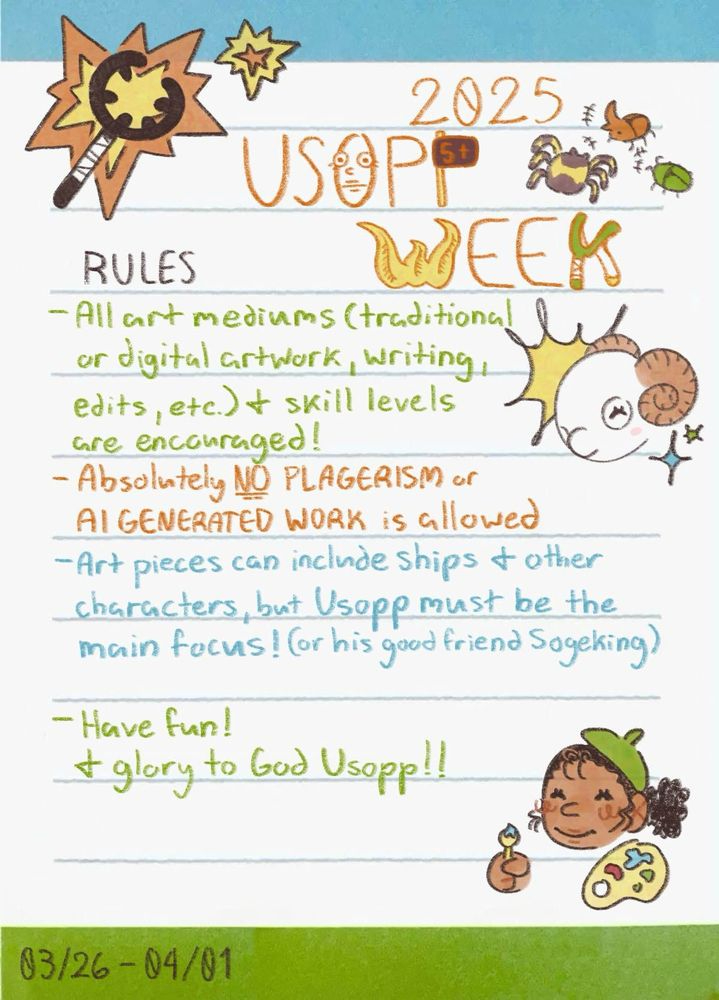 2025
USOPP
5t
WEEK
RULES
- All art mediums (traditional
or digital artwork, writing,
edits, etc.) + skill levels
are encouraged!
- Absolutely NO PLAGERISM or
AI GENERATED WORK is allowed
- Art pieces can include ships + other
characters, but Usopp must be the
main focus! (or his good friend Sogeking)
- Have fun!
+ glory to God Usopp!!
03/26 - 04/01